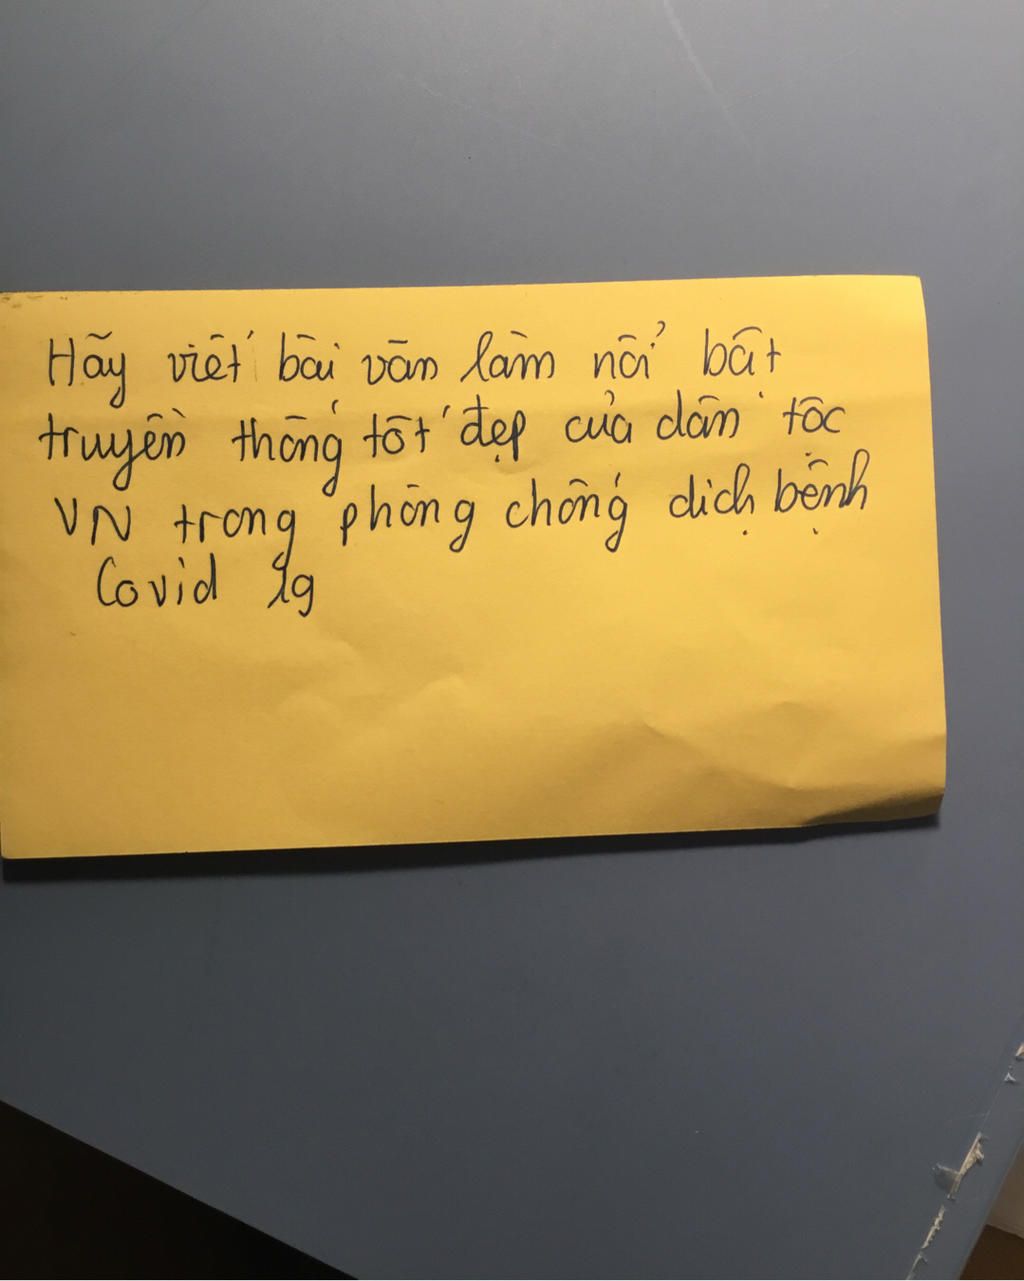 Hãy viết bài văn làm nổi bật
truyền thống tốt đẹp của dân tộc
VN trong phòng chống dịch bệnh
Covid 19